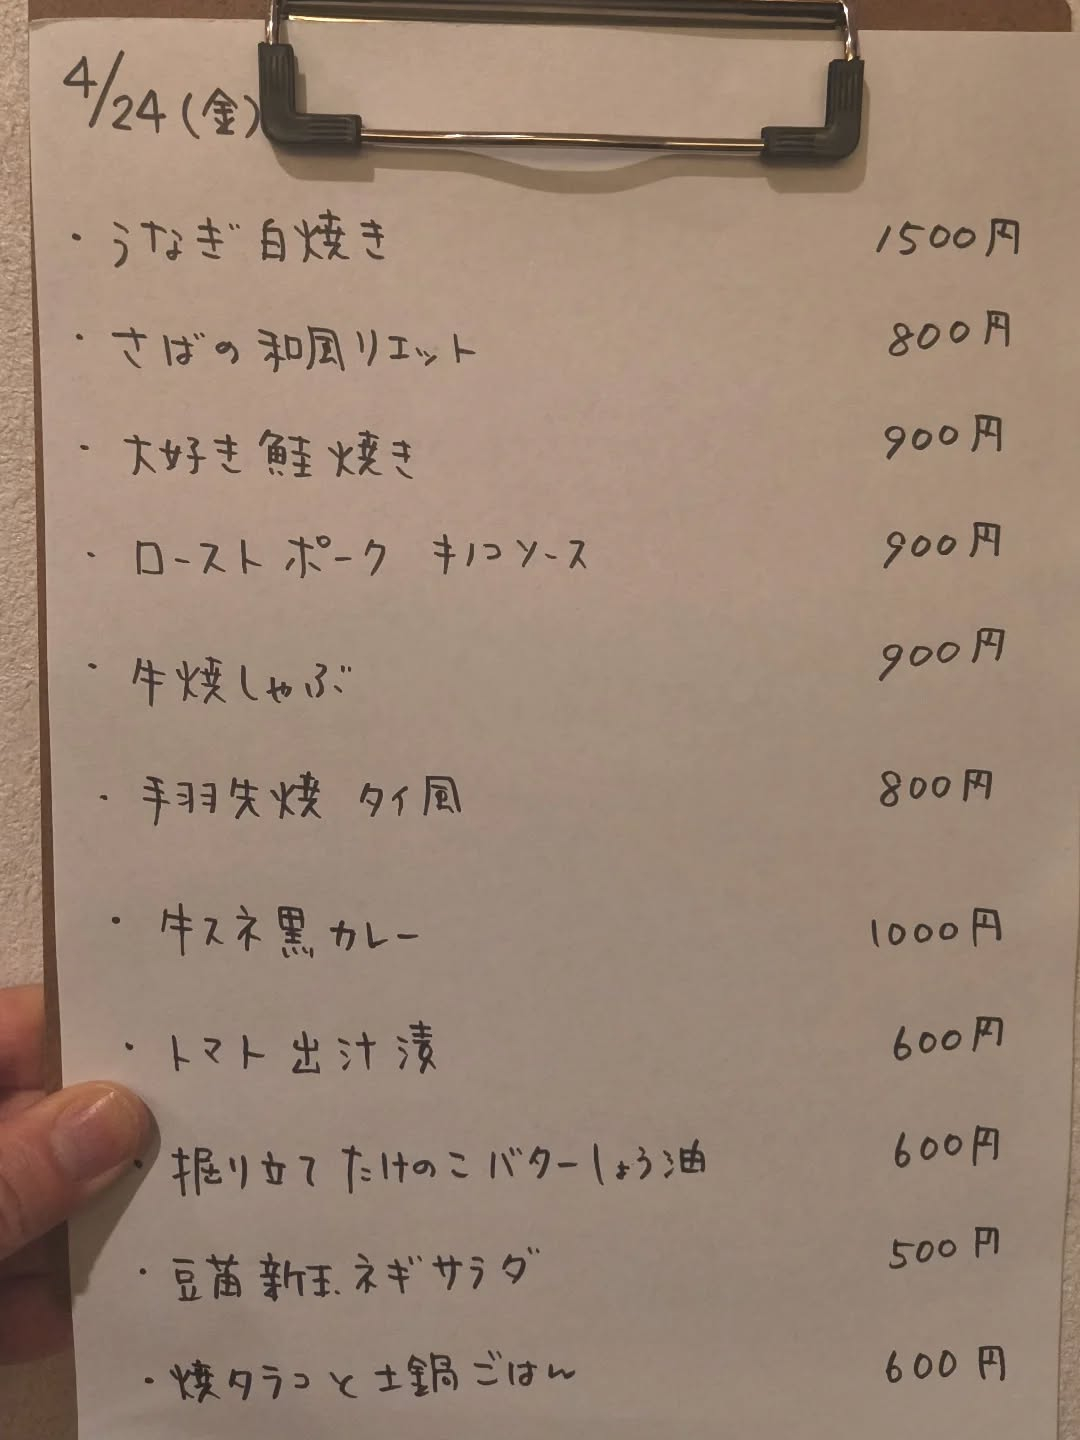 4/24(金)
・うなぎ白焼き 1500円
・さばの和風リエット 800円
・大好き鮭焼き 900円
・ローストポーク キノコソース 900円
・牛焼しゃぶ 900円
・手羽先焼 タイ風 800円
・牛スネ黒カレー 1000円
・トマト出汁漬 600円
・掘り立てたけのこバターしょう油 600円
・豆苗新玉ネギサラダ 500円
・焼タラコと土鍋ごはん 600円